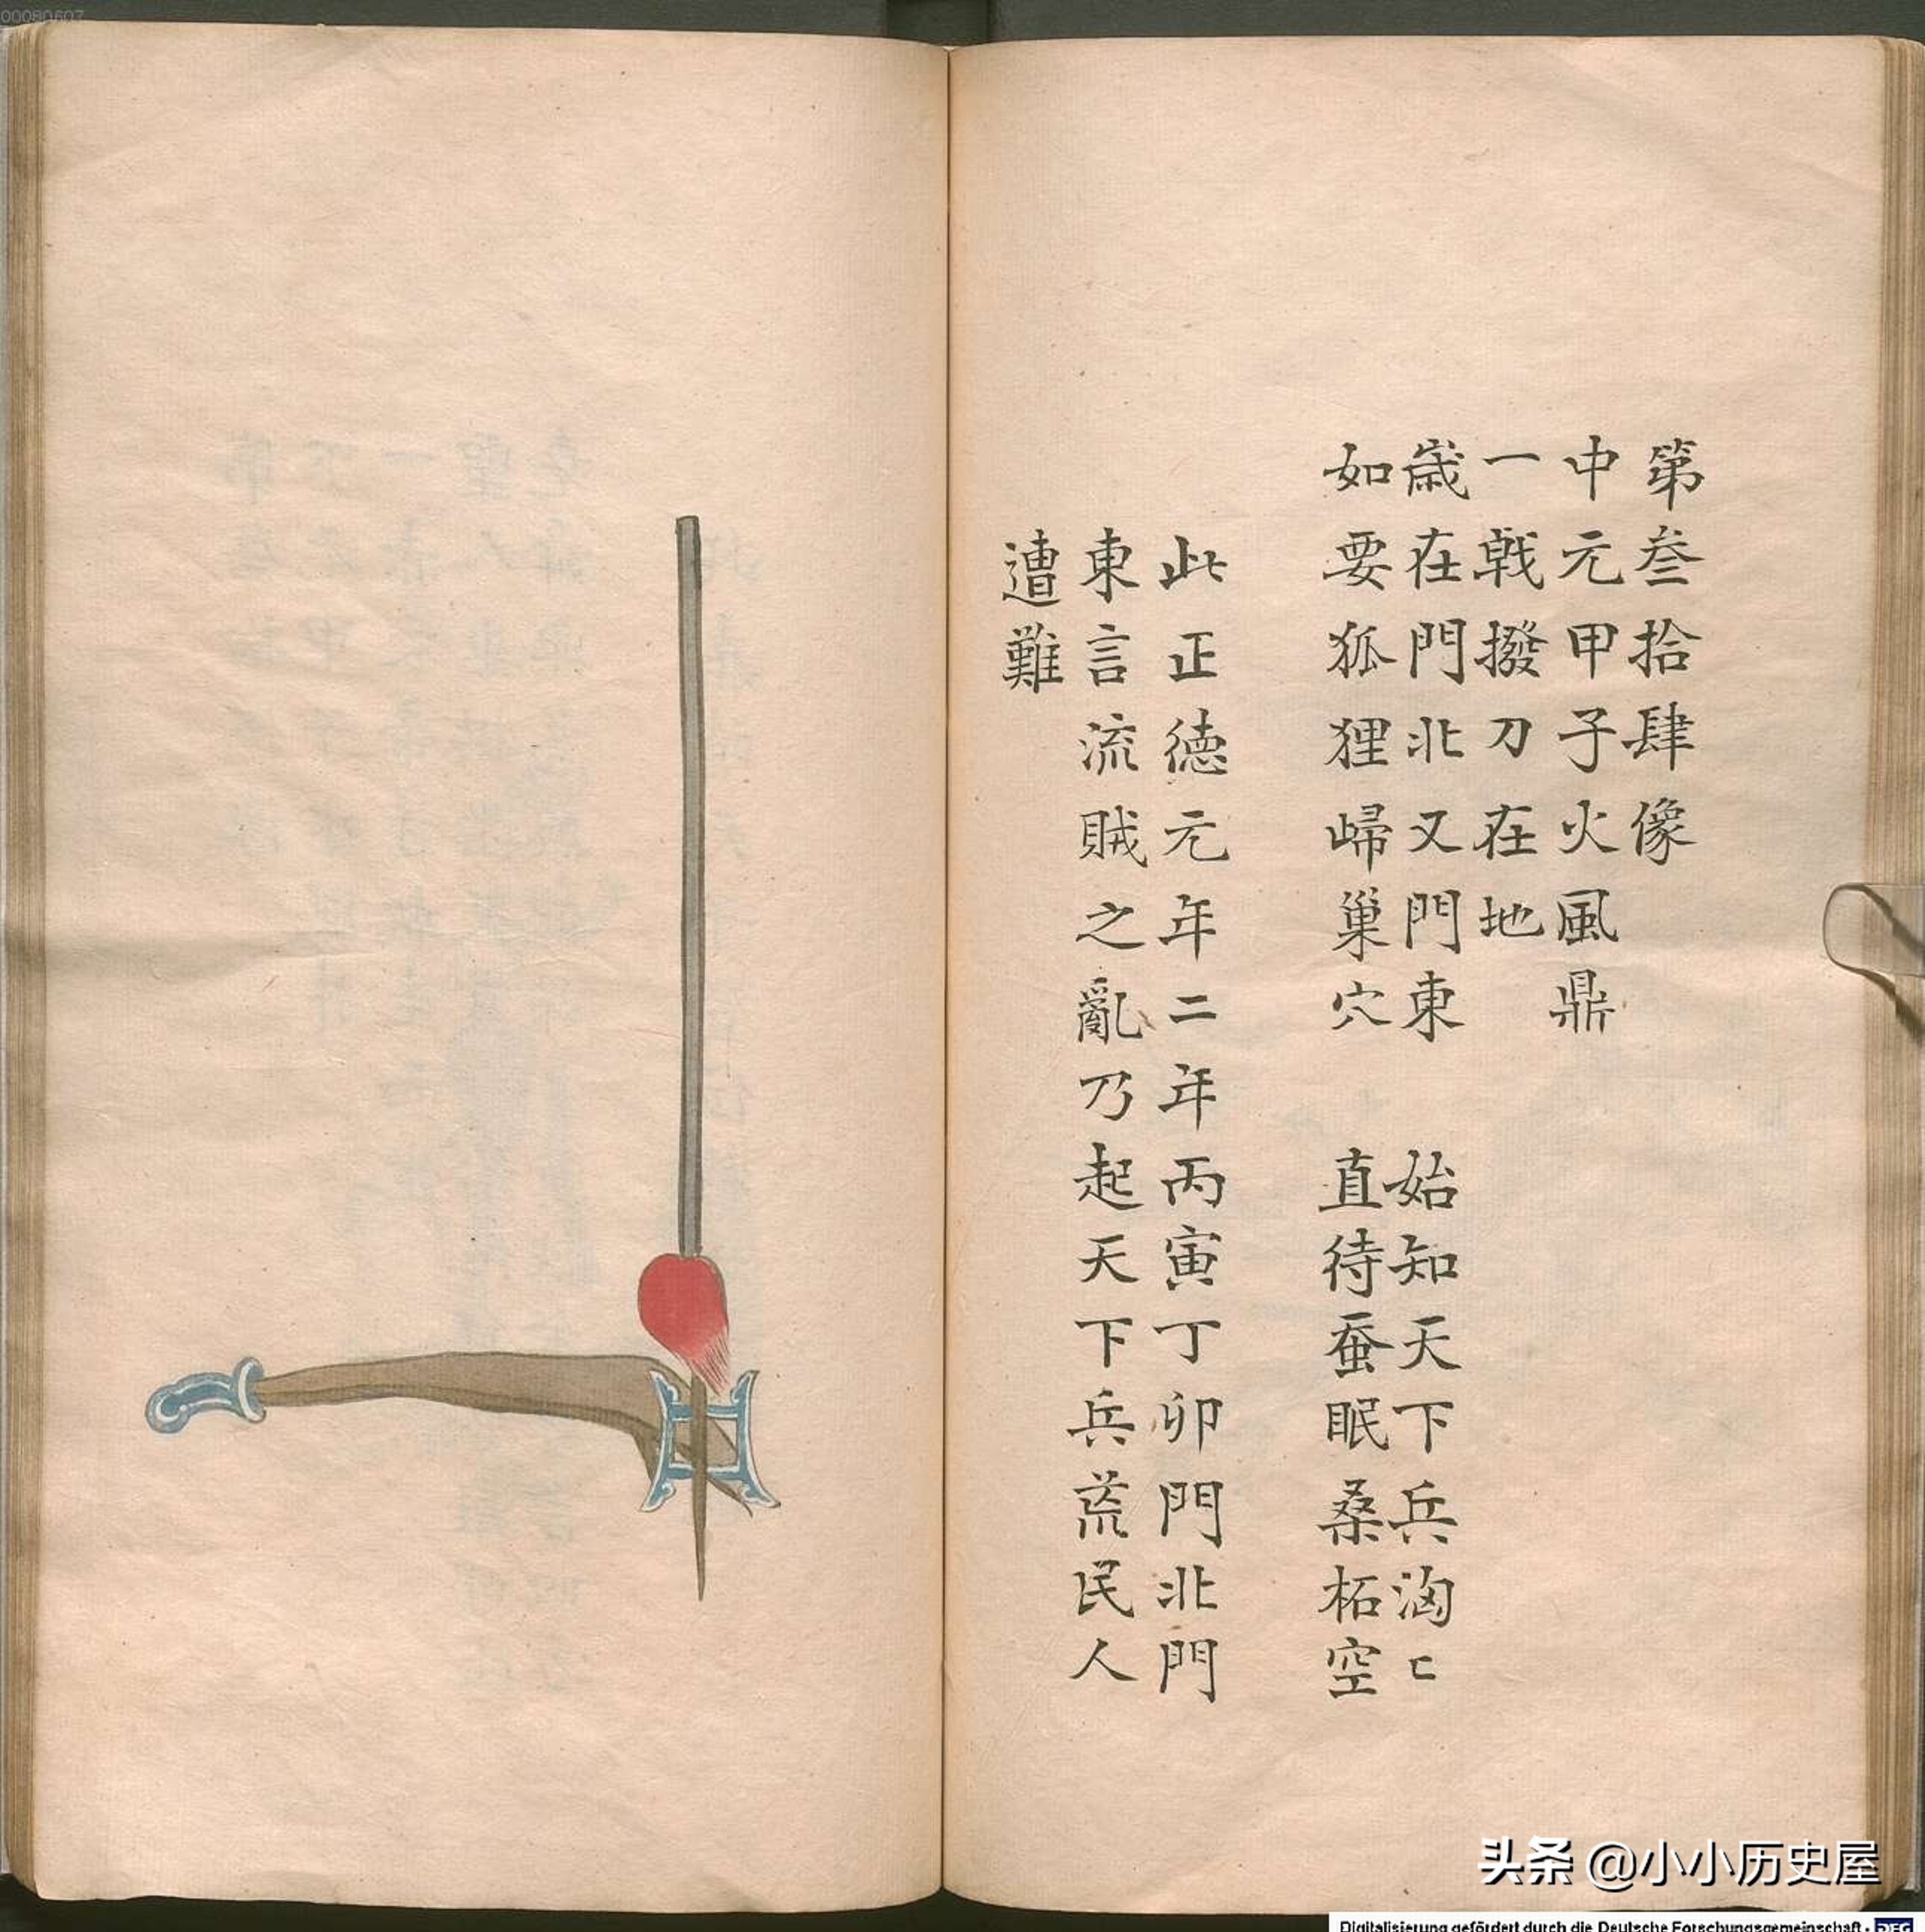 00080607
第叁拾肆像
中元甲子火風鼎
一戟撥刀在地
歳在門北又門東 始知天下兵洶匕
如要狐狸歸巢穴 直待蚕眠桑柘空
此正徳元年二年丙寅丁卯門北門
東言流賊之亂乃起天下兵荒民人
遭難
头条 @小小历史屋
Digitalisierung gefördert durch die Deutsche Forschungsgemeinschaft · DFG